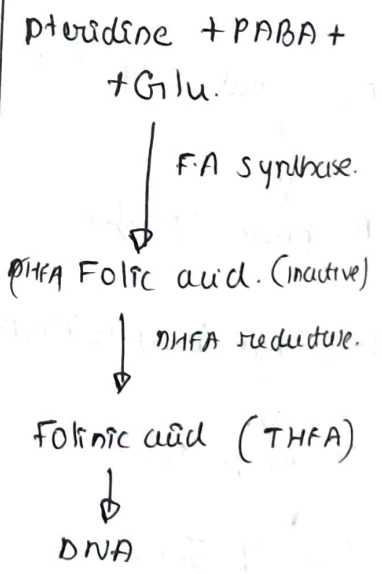 Pteridine + PABA +
+ Glu.
F.A synthase.
DHFA Folic acid. (inactive)
DHFA reductase.
Folinic acid (THFA)
DNA